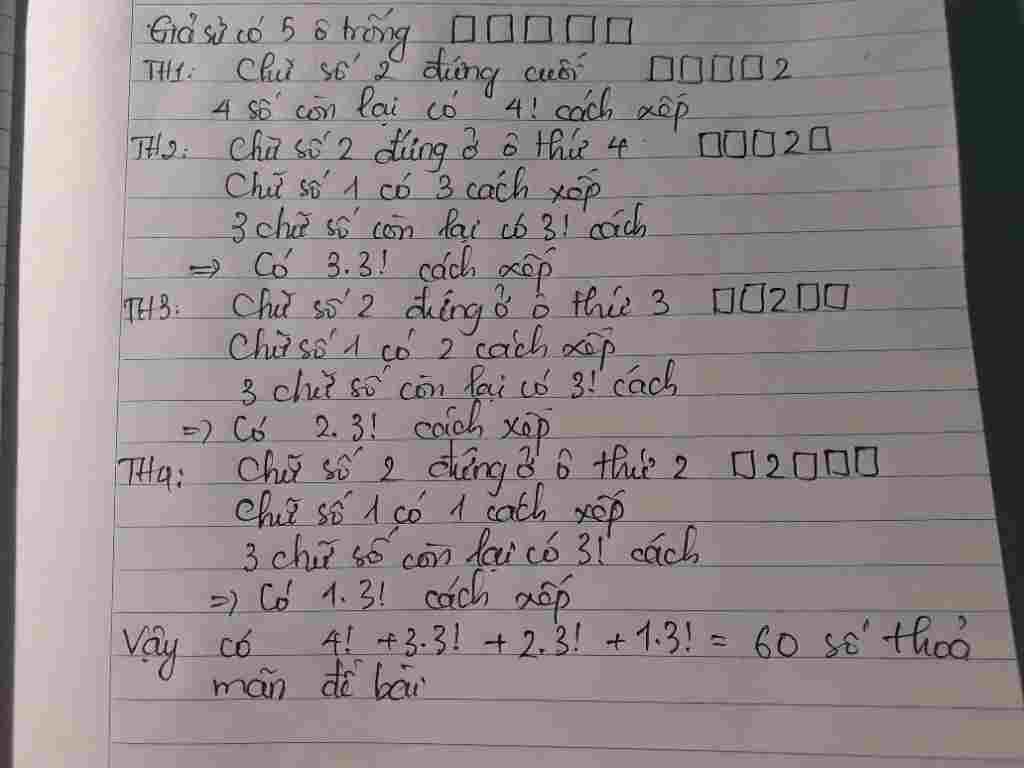 Giả sử có 5 ô trống □□□□□
TH1: Chữ số 2 đứng cuối □□□□2
4 số còn lại có 4! cách xếp
TH2: Chữ số 2 đứng ở ô thứ 4 □□□2□
Chữ số 1 có 3 cách xếp
3 chữ số còn lại có 3! cách
=> Có 3.3! cách xếp
TH3: Chữ số 2 đứng ở ô thứ 3 □□2□□
Chữ số 1 có 2 cách xếp
3 chữ số còn lại có 3! cách
=> Có 2.3! cách xếp
TH4: Chữ số 2 đứng ở ô thứ 2 □2□□□
Chữ số 1 có 1 cách xếp
3 chữ số còn lại có 3! cách
=> Có 1.3! cách xếp
Vậy có 4! + 3.3! + 2.3! + 1.3! = 60 số thoả
mãn đề bài